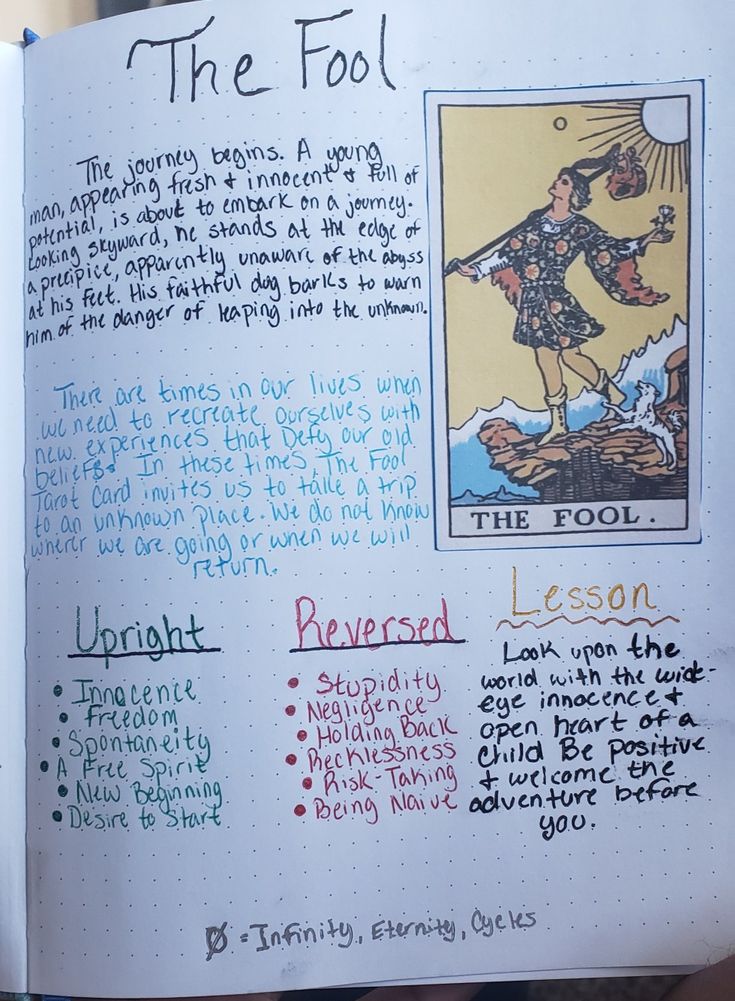 The Fool
The journey begins. A young
man, appearing fresh & innocent & full of
potential, is about to embark on a journey.
Looking skyward, he stands at the edge of
a precipice, apparently unaware of the abyss
at his feet. His faithful dog barks to warn
him of the danger of leaping into the unknown.
0
THE FOOL.
There are times in our lives when
we need to recreate ourselves with
new experiences that Defy our old
beliefs. In these times, The Fool
Tarot Card invites us to take a trip
to an unknown place. We do not know
wherer we are going or when we will
return.
Upright
• Innocence
• Freedom
• Spontaneity
• A Free Spirit
• New Beginning
• Desire to Start
Reversed
• Stupidity
• Negligence
• Holding Back
• Recklessness
• Risk-Taking
• Being Naive
Lesson
Look upon the
world with the wide-
eye innocence &
open heart of a
child Be positive
& welcome the
adventure before
you.
Ø = Infinity, Eternity, Cycles